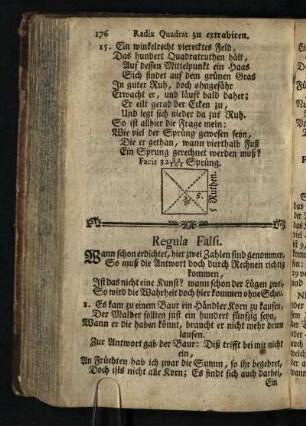 176 Radix Quadrat zu extrahiren.
15. Ein winkelrecht vierecktes Feld,
Das hundert Quadratruthen hält,
Auf dessen Mittelpunkt ein Haas
Sich findet auf dem grünen Gras
In guter Ruh, doch ohngefähr
Erwacht er, und läuft bald daher;
Er eilt gerad der Ecken zu,
Und legt sich nieder da zur Ruh.
So ist allhier die Frage mein:
Wie viel der Sprüng gewesen seyn,
Die er gethan, wann vierthalb Fuß
Ein Sprung gerechnet werden muß?
Facit 22 Sprüng.
5 Ruthen.
5.
Regula Falsi.
Wann schon erdichtet, hier zwei Zahlen sind genommen,
So muß die Antwort doch durch Rechnen richtig
kommen,
Ist das nicht eine Kunst? wann schon der Lügen zwei,
So wird die Wahrheit doch hier kommen ohne Scheu.
1. Es kam zu einem Baur ein Händler Korn zu kaufen,
Der Malder sollten just ein hundert fünfzig seyn,
Wann er die haben könnt, braucht er nicht mehr drum
laufen.
Zur Antwort gab der Baur: Diß trifft bei mir nicht
ein,
An Früchten hab ich zwar die Summ, so ihr begehret,
Doch ists nicht alle Korn; Es findt sich auch darbei,
Ein